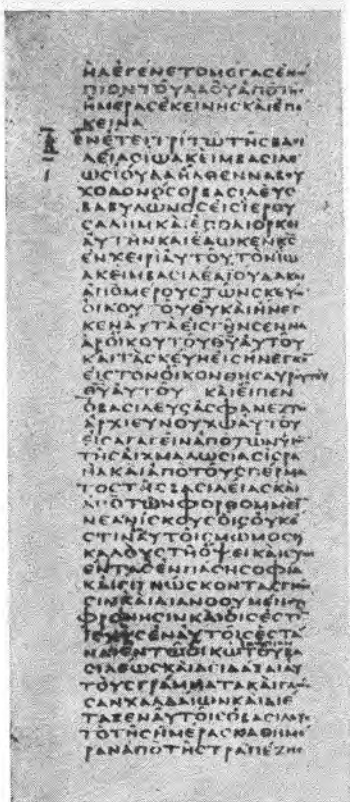 ΗΛΕΓΕΝΕΤΟΜΕΓΑϹΕΝΩ
ΠΙΟΝΤΟΥΛΑΟΥΑΠΟΤΗϹ
ΗΜΕΡΑϹΕΚΕΙΝΗϹΚΑΙΕΠΕ
ΚΕΙΝΑ
ΕΝΕΤΕΙΤΡΙΤΩΤΗϹΒΑϹΙ
ΛΕΙΑϹΙΩΑΚΕΙΜΒΑϹΙΛΕ
ΩϹΙΟΥΔΑΗΛΘΕΝΝΑΒΟΥ
ΧΟΔΟΝΟϹΟΡΒΑϹΙΛΕΥϹ
ΒΑΒΥΛΩΝΟϹΕΙϹΙΕΡΟΥ
ϹΑΛΗΜΚΑΙΕΠΟΛΙΟΡΚΕΙ
ΑΥΤΗΝΚΑΙΕΔΩΚΕΝΚϹ
ΕΝΧΕΙΡΙΑΥΤΟΥΤΟΝΙΩ
ΑΚΕΙΜΒΑϹΙΛΕΑΙΟΥΔΑΚΑΙ
ΑΠΟΜΕΡΟΥϹΤΩΝϹΚΕΥΩ
ΟΙΚΟΥΤΟΥΘΥΚΑΙΗΝΕΓ
ΚΕΝΑΥΤΑΕΙϹΓΗΝϹΕΝΝΑ
ΑΡΟΙΚΟΥΤΟΥΘΥΑΥΤΟΥ
ΚΑΙΤΑϹΚΕΥΗΕΙϹΗΝΕΓΚΕ
ΕΙϹΤΟΝΟΙΚΟΝΘΗϹΑΥΡΟΥΤΟΥ
ΘΥΑΥΤΟΥ ΚΑΙΕΙΠΕΝ
ΟΒΑϹΙΛΕΥϹΑϹΦΑΝΕΖΤΩ
ΑΡΧΙΕΥΝΟΥΧΩΑΥΤΟΥ
ΕΙϹΑΓΑΓΕΙΝΑΠΟΤΩΝΥΙΩ
ΤΗϹΑΙΧΜΑΛΩϹΙΑϹΙϹΡΑ
ΗΛΚΑΙΑΠΟΤΟΥϹΠΕΡΜΑ
ΤΟϹΤΗϹΒΑϹΙΛΕΙΑϹΚΑΙ
ΑΠΟΤΩΝΦΟΡΘΟΜΜΕΙ
ΝΕΑΝΙϹΚΟΥϹΟΙϹΟΥΚΕ
ϹΤΙΝΑΥΤΟΙϹΜΩΜΟϹΚ
ΚΑΛΟΥϹΤΗΟΨΕΙΚΑΙϹΥΝΙ
ΕΝΤΑϹΕΝΠΑϹΗϹΟΦΙΑ
ΚΑΙΓΙΓΝΩϹΚΟΝΤΑϹΓΝΩ
ϹΙΝΚΑΙΔΙΑΝΟΟΥΜΕΝΟΥϹ
ΦΡΟΝΗϹΙΝΚΑΙΟΙϹΕϹΤΙ
ΙϹΧΥϹΕΝΑΥΤΟΙϹΕϹΤΑ
ΝΑΙΕΝΤΩΟΙΚΩΤΟΥΒΑ
ϹΙΛΕΩϹΚΑΙΔΙΔΑΞΑΙΑΥ
ΤΟΥϹΓΡΑΜΜΑΤΑΚΑΙΓΛΩϹ
ϹΑΝΧΑΛΔΑΙΩΝΚΑΙΔΙΕ
ΤΑΞΕΝΑΥΤΟΙϹΟΒΑϹΙΛΕΥϹ
ΤΟΤΗϹΗΜΕΡΑϹΚΑΘΗΜΕ
ΡΑΝΑΠΟΤΗϹΤΡΑΠΕΖΗϹ